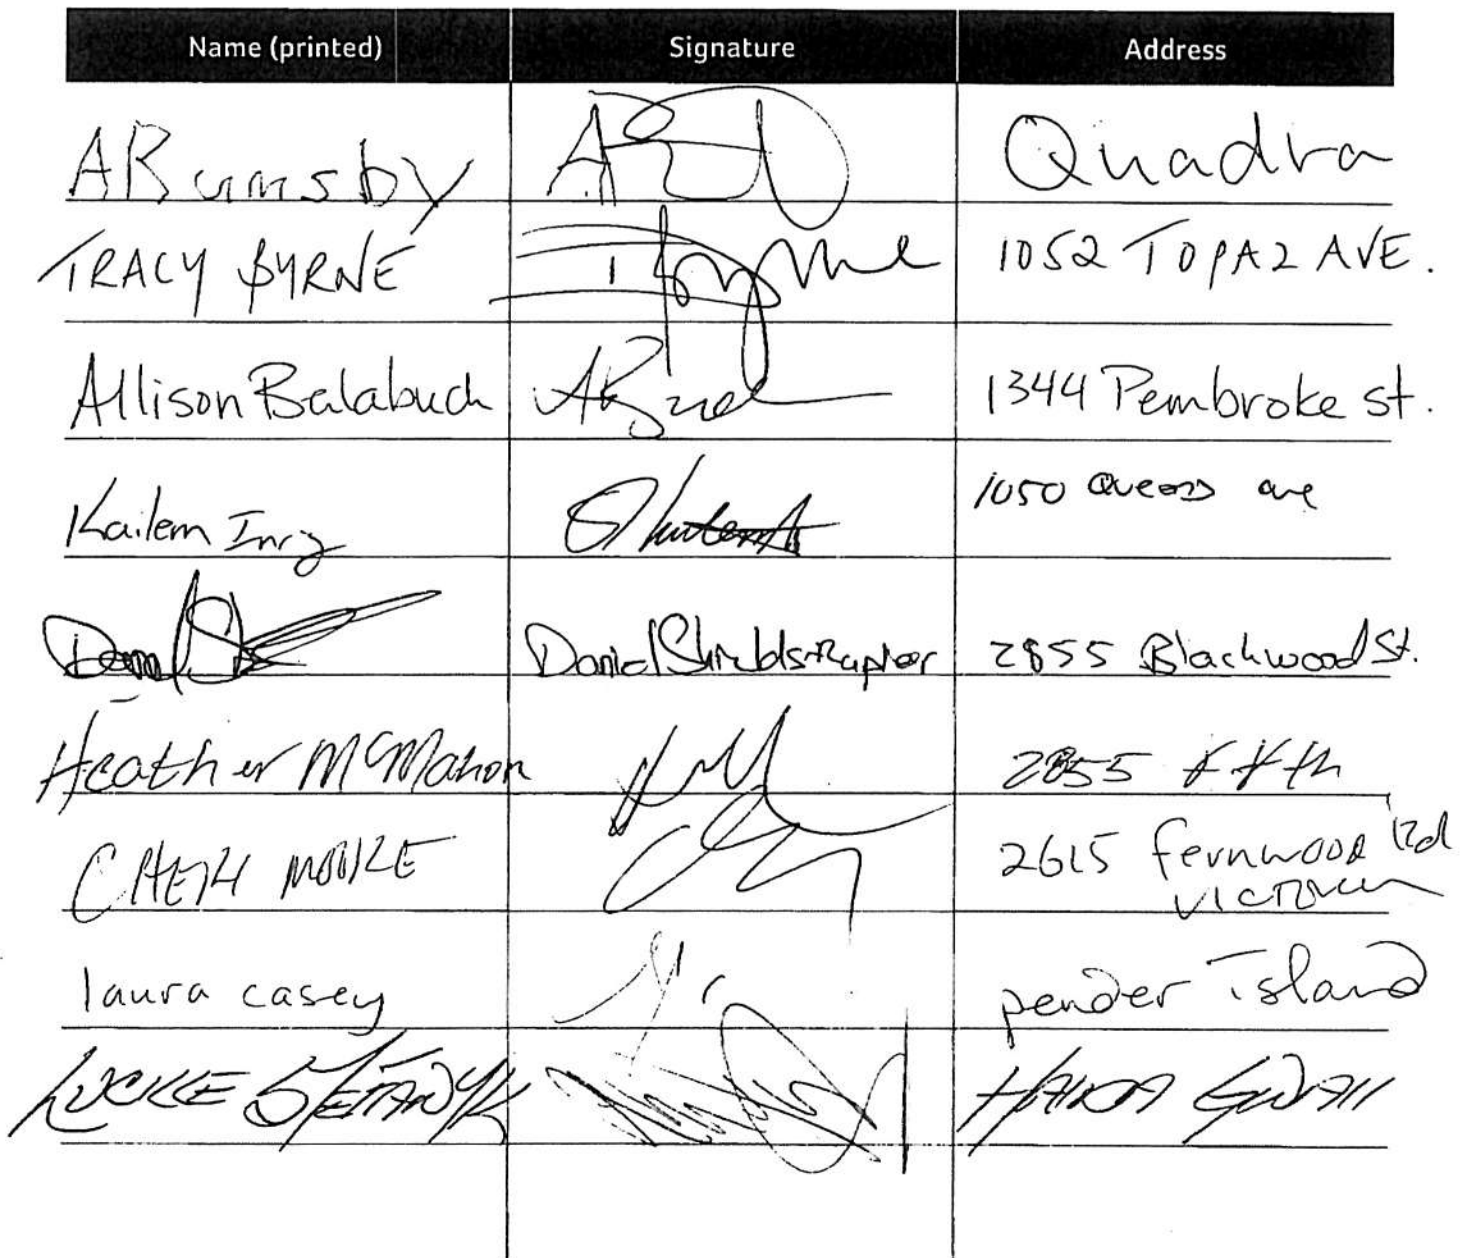 Name (printed) Signature Address
ARumsby Quadra
TRACY BYRNE TByrne 1052 TOPAZ AVE.
Allison Balabuch 1344 Pembroke St.
Kailem 1050 Queens ave
Daniel Daniel Shields+Rapier 2855 Blackwood St.
Heather McMahon 2855
MOORE 2615 fernwood Rd
Victoria
laura casey pender Island
LUCKE STEFANYK HAIDA GWAII